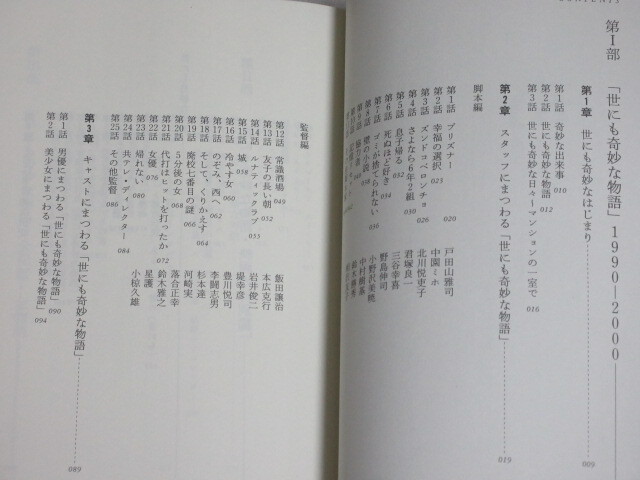 CONTENTS
第Ⅰ部 「世にも奇妙な物語」1990-2000 009
第1章 世にも奇妙なはじまり
第1話 奇妙な出来事 010
第2話 世にも奇妙な物語 012
第3話 世にも奇妙な日々〜マンションの一室で 016
第2章 スタッフにまつわる「世にも奇妙な物語」 019
脚本編
第1話 プリズナー 020 戸田山雅司
第2話 幸福の選択 023 中園ミホ
第3話 ズンドコベロンチョ 026 北川悦吏子
第4話 さよなら6年2組 君塚良一
第5話 息子帰る 三谷幸喜
第6話 死ぬほど好き 野島伸司
第7話 ゴミが捨てられない 小野沢美暁
監督編
第12話 常識酒場 049 飯田譲治
第13話 友子の長い朝 052 本広克行
第14話 ルナティックラブ 055 岩井俊二
第15話 城 058 堤幸彦
第16話 冷やす女 060 豊川悦司
第17話 のぞみ、西へ 062 李闘志男
第18話 そして、くりかえす 064 杉本達
第19話 廃校七番目の謎 066 河崎実
第20話 5分後の女 068 落合正幸
第21話 代打はヒットを打ったか 072 鈴木雅之
第22話 女優 076 星護
第23話 帰れない 080 小椋久雄
第24話 共テレ・ディレクター 084
第25話 その他監督 086
第3章 キャストにまつわる「世にも奇妙な物語」 089
第1話 男優にまつわる「世にも奇妙な物語」 090
第2話 美少女にまつわる「世にも奇妙な物語」 094